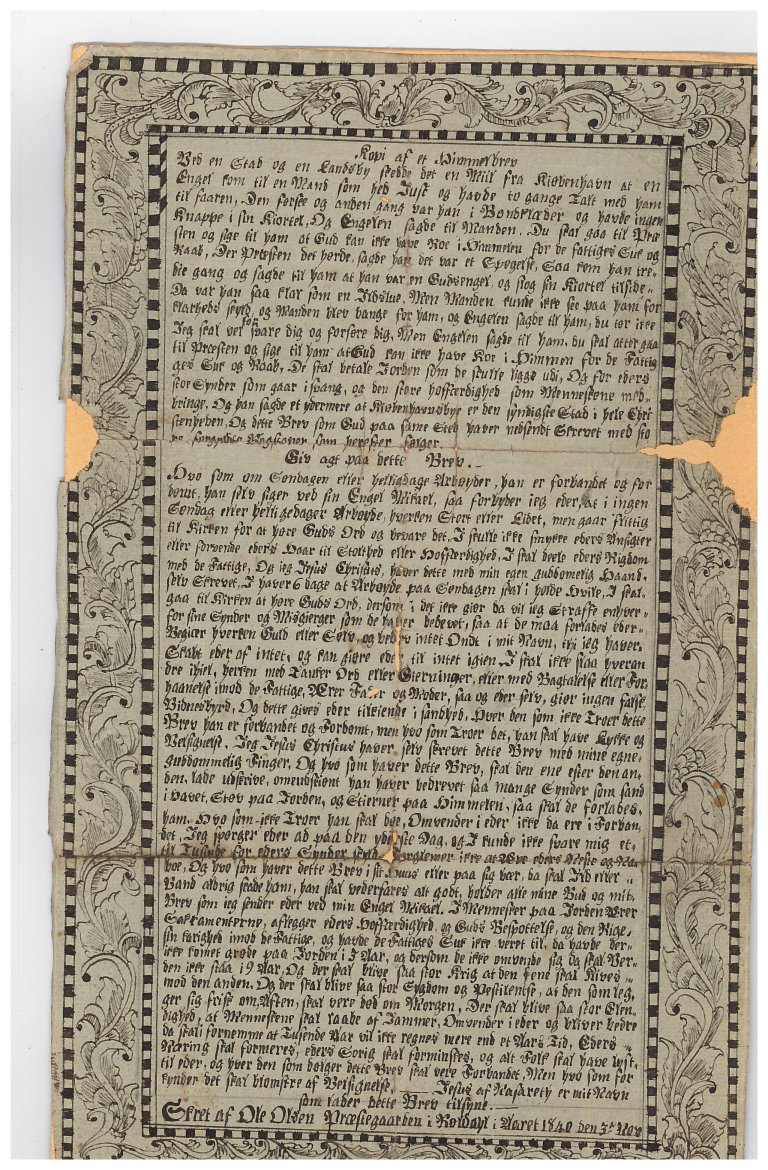 Kopi af et Himmelbrev
Ved en Stad og en Landsby skedde det en Miil fra Kiøbenhavn at en
Engel kom til en Mand som hed Just og havde to gange Talt med ham
til faaren, Den førske og anden gang var han i Bondklæder og havde ingen
Knappe i sin Kiortel, Og Engelen sagde til Manden, Du skal gaa til Præ
sten og sige til ham at Gud kan ikke have Roe i Himmelen for de fattiges Suk og
Raab, Der Præsten det hørde, sagde han det var et Spøgelse, Saa kom han tre-
die gang og sagde til ham at han var en Gudsengel, og slog sin Kiortel tilside-
Da var han saa klar som en Ildslue, Men Manden kunde ikke see paa ham for
klarheds skyld, og Manden blev bange for ham, og Engelen sagde til ham, du tør ikke
Jeg skal vel forsvare dig og forsøre dig, Men Engelen sagde til ham, du skal atter gaa
til Præsten og sige til ham at Gud kan ikke have Roe i Himmen for de Fattig
ges Suk og Raab, De skal betale Jorden som de skulle ligge udi, Og for eders
store Synder som gaar i svang, og den store hoffærdighed som Menneskene med-
bringe. Og han sagde et ydermere at Kiøbenhavnsbye er den syndigste Stad i hele Chri
stenheden, Og dette Brev som Gud paa samme Sted haver nedsendt Skrevet med sto
re Bogstaver som herefter følger.
Giv agt paa dette Brev.-
Hvo som om Søndagen eller helligdage Arbeyder, han er forbandet og for
dømt, han selv siger ved sin Engel Mikael, saa forbyder ieg eder, at i ingen
Søndag eller helligedager Arbeyde, hverken Stort eller Lidet, men gaar flittig
til Kirken for at høre Guds Ord og bevare det. I skulle ikke smykke eders Ansigter
eller forvende eders Haar til Stolthed eller Hoffærdighed, I skal deele eders Rigdom
med de Fattige, Og ieg Jesus Christus, haver dette med min egen guddomelig Haand
selv Skrevet, I haver 6 dage at Arbeyde paa Søndagen skal i holde Hvile, I skal-
gaa til Kirken at høre Guds Ord, dersom i det ikke giør da vil ieg Straffe enhver-
for sine Synder og Misgierger som de haver bedevet, saa at de maa forlades eder-
Begiær hverken Guld eller Sølv, og bedrev intet Ondt i mit Navn, thi ieg haver-
Skabt eder af intet, og kan giøre eder til intet igien. I skal ikke slaa hveran
dre ihiel, herken med Tanker Ord eller Gierninger, eller med Bagtalelse eller For
haanelse imod de Fattige, Ærer Fader og Moder, saa og eder selv, giør ingen false
Vidnesbyrd, Og dette gives eder tilkiende i sandhed, Hver den som ikke Troer dette
Brev han er forbandet og Fordømt, men hvo som Troer det, han skal have Lykke og
Velsignelse. Jeg Jesus Christus haver, selv skrevet dette Brev med mine egne-
guddommelig Finger, Og hvo som haver dette Brev, skal den ene efter den an-
den, lade udskrive, omendskiønt han haver bedrevet saa mange Synder som sand
i Havet, Støv paa Jorden, og Stierner paa Himmelen, saa skal de forlades-
ham. Hvo som ikke Troer han skal døe, Omvender i eder ikke da ere i Forban
det, Jeg spørger eder ad paa den yderste Dag, og I kunde ikke svare mig et-
til Tusinde for eders Synder skyld, forglemer ikke at Ære eders Neste og Na-
boe, Og hvo som haver dette Brev i sit Huus eller paa sig bær, da skal Ild eller
Vand aldrig skade ham, han skal vederfares alt godt, holder alle mine Bud og mit-
Brev som ieg sender eder ved min Engel Mikael. I Mennesker paa Jorden Ærer
Sakramenterne, aflegger eders Hoffærdighed, og Guds Bespottelse, og den Rige-
sin karighed imod de Fattige, og havde de Fattiges Suk ikke været til, da havde der-
ikke komet grøde paa Jorden i 3 Aar, og dersom de ikke omvende sig da skal Ver-
den ikke staa i 9 Aar, Og der skal blive saa stor Krig at den Ene skal Kives-
mod den anden, Og der skal blive saa stor Sygdom og Pestilentse, at den som leg,
ger sig frisk om Aften, skal vere død om Morgen, Der skal blive saa stor Elen,
dighed, at Menneskene skal raabe af Jammer, Omvender i eder og bliver bedre
da skal i fornemme at Tusende Aar vil ikke regnes mere end et Aars Tid, Eders
Næring skal formeres, eders Sorig skal forminskes, og alt Folk skal have lyst,
til eder, og hver den som dølger dette Brev skal vere Forbandet, Men hvo som for
kynder det skal blomstre af Velsignelse. Jesus af Nasareth er mit Navn
som lader dette Brev tilsyne.-
Skret af Ole Olsen Præstegaarden i Roldahl i Aaret 1840 den 3de Nov